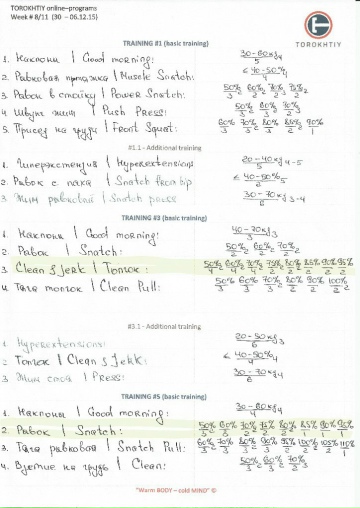 TOROKHTIY online-programs
Week # 8/11 (30 – 06.12.15)
TOROKHTIY
TRAINING #1 (basic training)
1. Наклоны | Good morning: 30-60кг/5 4
2. Рывковая протяжка | Muscle Snatch: ≤ 40-50%/5 4
3. Рывок в стойку | Power Snatch: 50%/3 60%/2 70%/2 75%/2 2
4. Швунг жим | Push Press: 50%/3 60%/3 70%/2
5. Присед на груди | Front Squat: 60%/3 70%/3 80%/3 85%/2 90%/1
#1.1 - Additional training
1. Гиперэкстензия | Hyperextensions 20-40кг/5 4-5
2. Рывок с паха | Snatch from hip ≤ 40-50%/2 5
3. Жим рывковый | Snatch press 30-70кг/3-4
TRAINING #3 (basic training)
1. Наклоны | Good morning: 40-70кг/3
2. Рывок | Snatch: 50%/2 60%/2 70%/2
3. Clean & Jerk | Толчок:
4. Тяга толчок | Clean Pull: 50%/3 60%/3 70%/3 80%/2 90%/2 100%/2
#3.1 - Additional training
1. Hyperextensions: 20-50кг/6 3
2. Толчок | Clean & Jerk: ≤ 40-50%/4
3. Жим стоя | Press: 30-70кг/6 4
TRAINING #5 (basic training)
1. Наклоны | Good morning: 30-60кг/4
2. Рывок | Snatch:
3. Тяга рывковая | Snatch Pull:
4. Взятие на грудь | Clean: 50%/3 60%/3 70%/3
"Warm BODY – cold MIND" ©